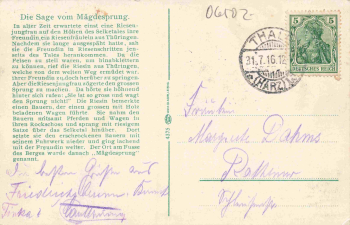 Die Sage vom Mägdesprung.
In alter Zeit erwartet einst eine Riesen-
jungfrau auf den Höhen des Selketales ihre
Freundin, ein Riesenfräulein aus Thüringen.
Nachdem sie lange ausgespäht hatte, sah
sie die Freundin in Riesenschritten jen-
seits des Tales herankommen. Da die
Felsen zu steil waren, um hinabklettern
zu können, rief die Riesin aus Thüringen,
welche von dem weiten Weg ermüdet war,
ihrer Freundin zu, doch herüber zu springen.
Aber die Riesenjungfrau zögerte den grossen
Sprung zu machen. Da hörte sie höhnend
hinter sich rufen: „Sie ist so gross und wagt
den Sprung nicht!" Die Riesin bemerkte
einen Bauern, der einen grossen mit Holz
beladenen Wagen führte. Sie nahm den
Bauern mitsamt Pferden und Wagen in
ihren Rockschoss und sprang mit grossem
Satze über das Selketal hinüber. Dort
setzte sie den erschrockenen Bauern mit
seinem Fuhrwerk nieder und ging lachend
mit der Freundin weiter. Der Ort am Fusse
des Berges wurde danach „Mägdesprung"
genannt.
THALE
31.7.16.12
(HARZ)
5
5
DEUTSCHES REICH
Fräulein
Margarete Dahms
Rathenow
Die besten Grüße aus